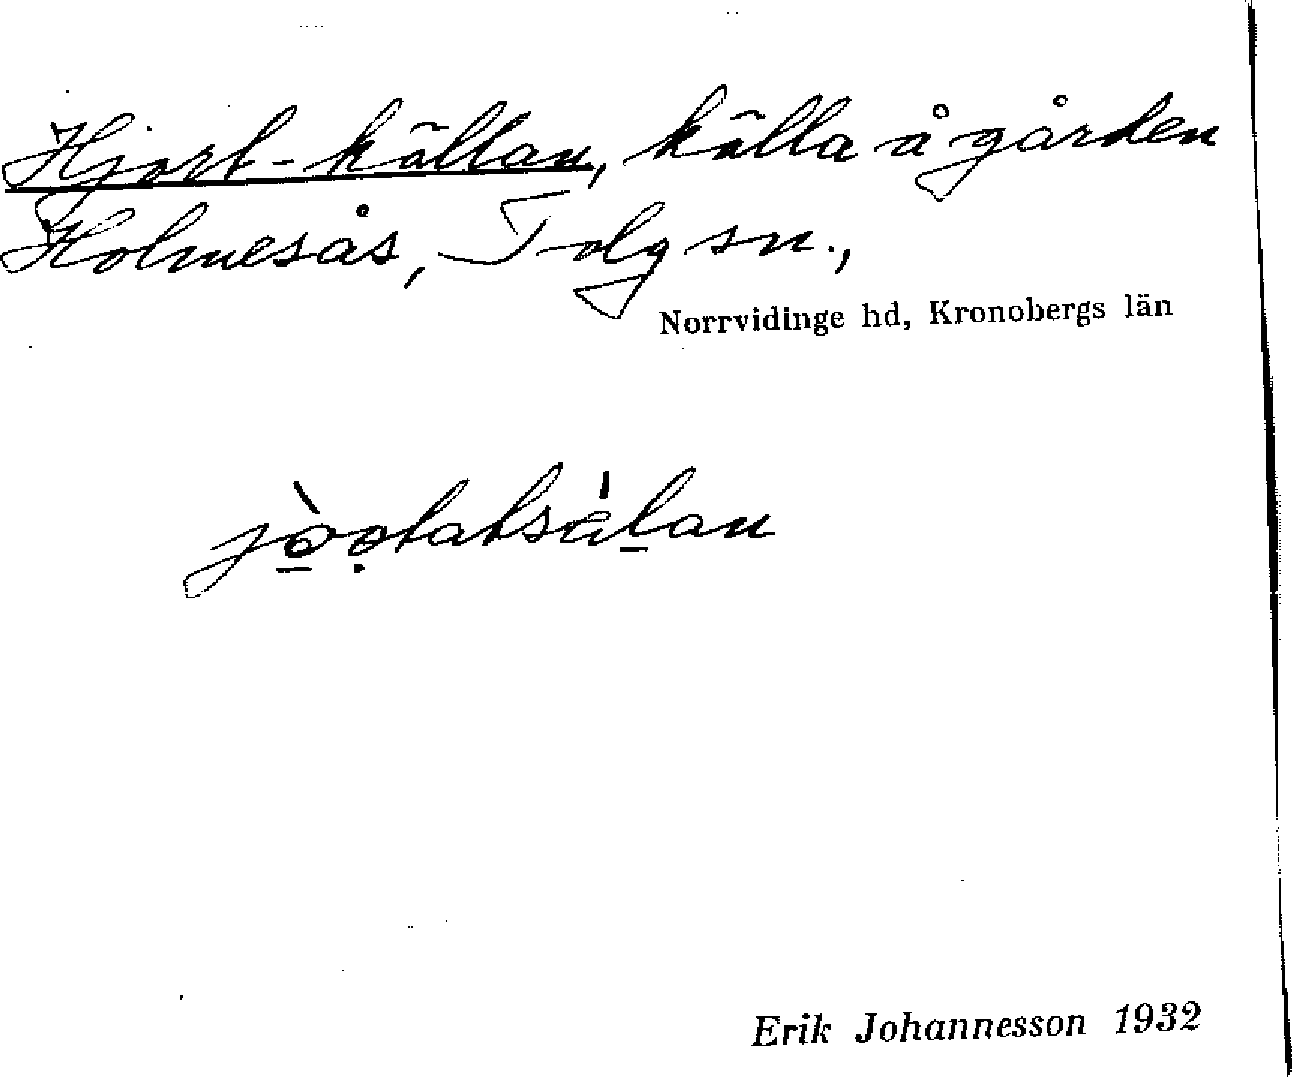 Hjort-källan, källa å gården
Holmesås, Tolg sn.,
Norrvidinge hd, Kronobergs län
Erik Johannesson 1932